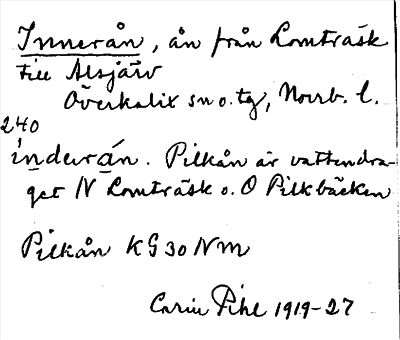 Innerån, ån från Lomträsk
till Alsjärv
Överkalix sn o. tg, Norrb. l.
240
índerán. Pilkån är vattendra-
get N Lomträsk o. O Pilkbäcken
Pilkån KG 30 NM
Carin Pihl 1919-27